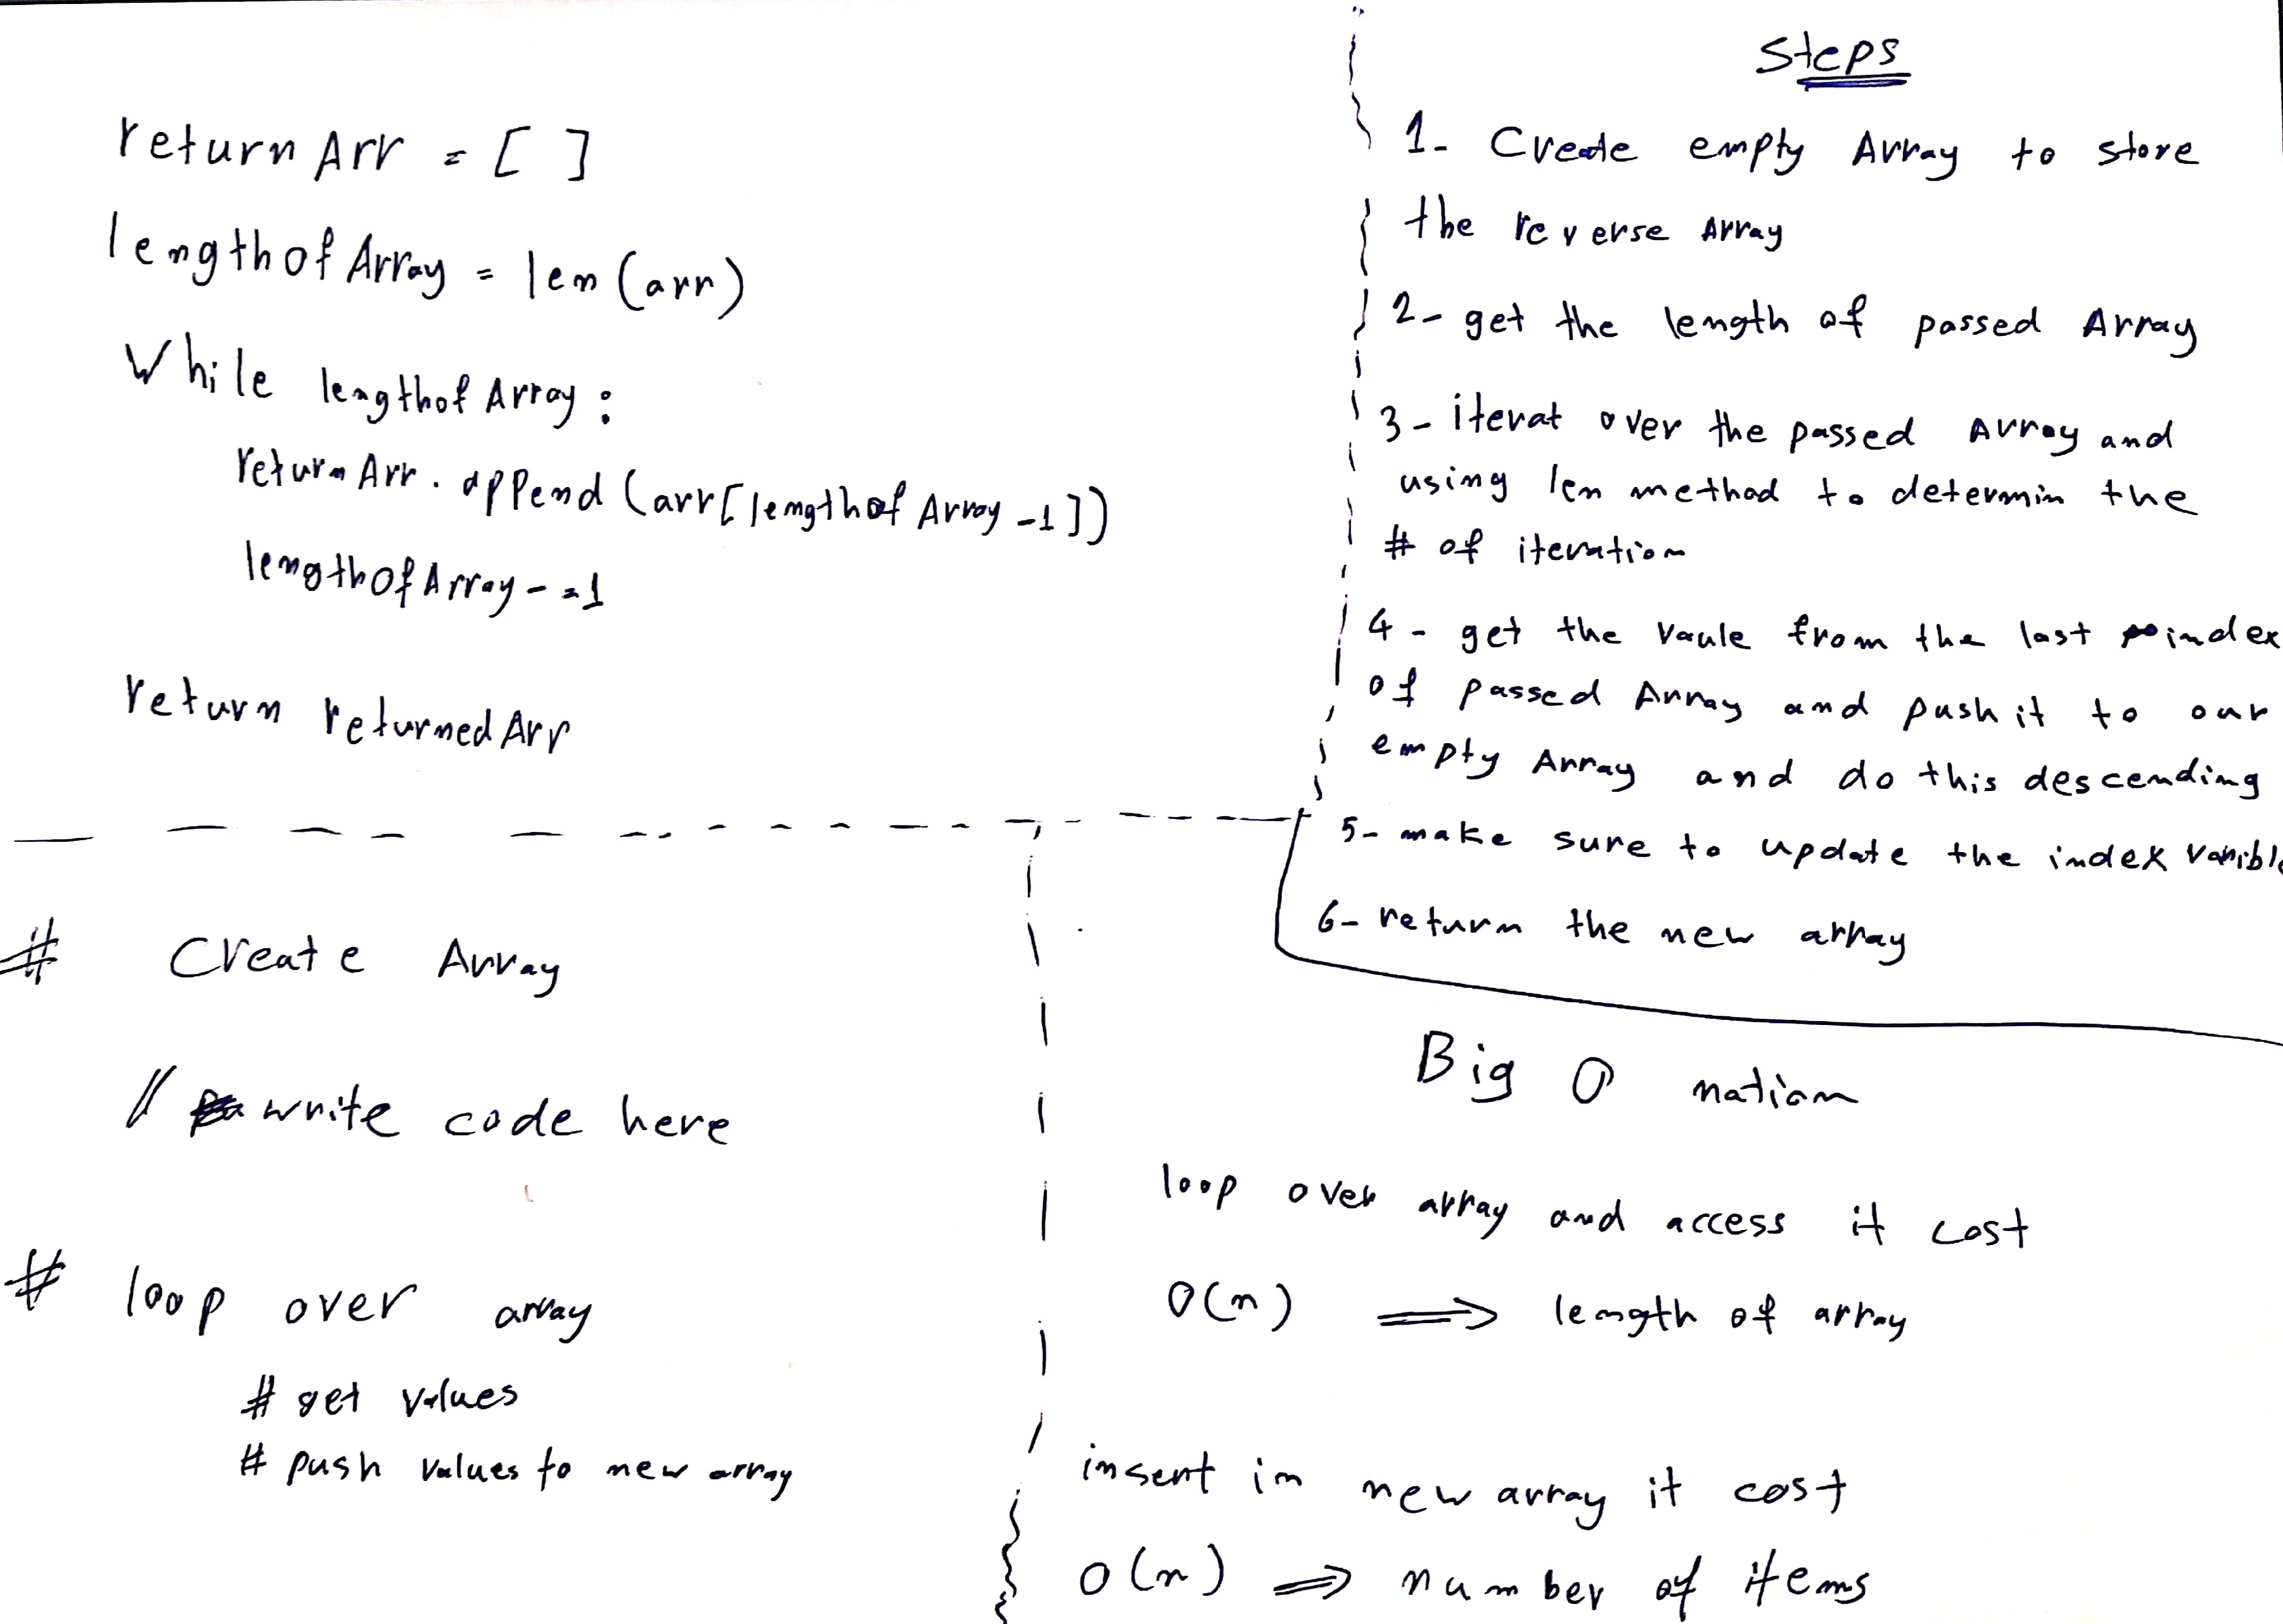 returnArr = [ ]
lengthofArray = len(arr)
While lengthofArray:
returnArr.append(arr[lengthofArray-1])
lengthofArray-=1
return returnedArr
Steps
1- Create empty Array to store
the reverse Array
2- get the length of passed Array
3- iterat over the passed Array and
using len method to determin the
# of iteration
4- get the vaule from the last index
of passed Array and push it to our
empty Array and do this descending
5- make sure to update the index varible
6- return the new array
# Create Array
// write code here
# loop over array
# get values
# push values to new array
Big O nation
loop over array and access it cost
O(n) ⟹ length of array
insert in new array it cost
O(n) ⟹ number of items